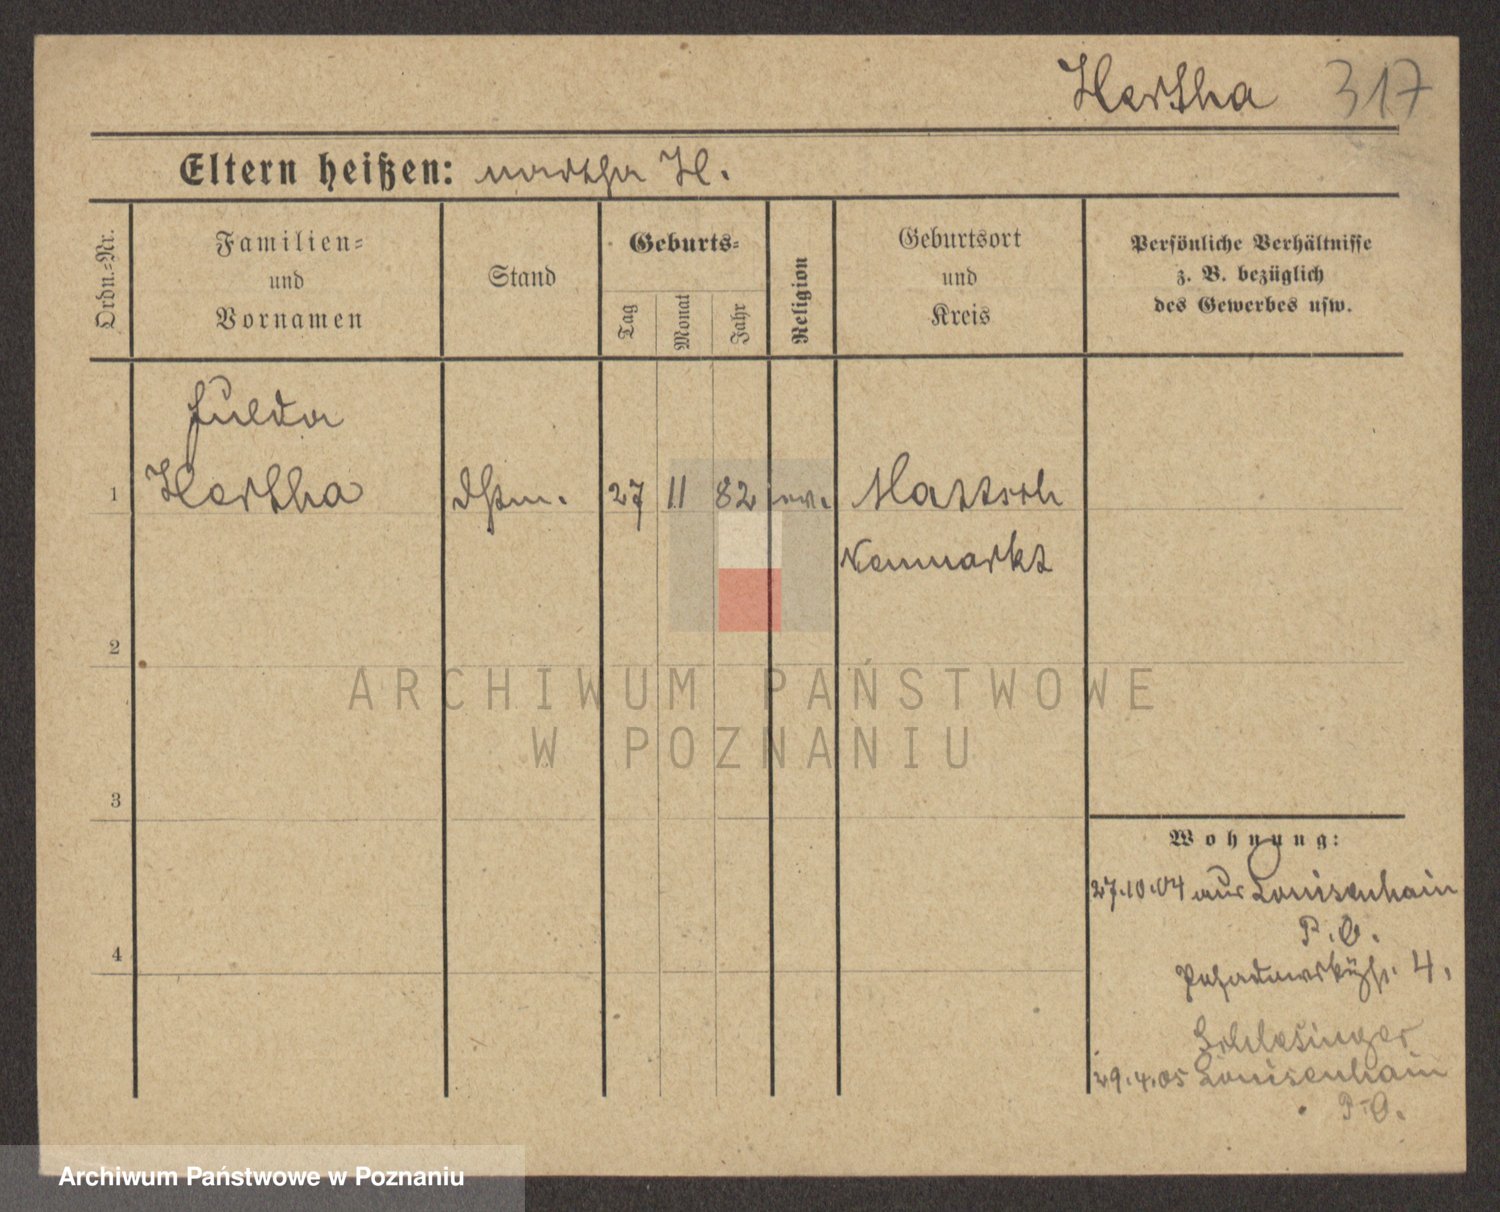 Hertha 317
Eltern heißen: Martha H.
Ordn.-Nr.
Familien-
und
Vornamen
Stand
Geburts-
Tag
Monat
Jahr
Religion
Geburtsort
und
Kreis
Persönliche Verhältnisse
z. B. bezüglich
des Gewerbes usw.
Fulda
1 Hertha 27 11 82 ev.
Neumarkt
2
3
4
Wohnung:
27.10.04 aus Louisenhain
P.O.
4.
Schlesinger
29.4.05 Louisenhain
P.O.
ARCHIWUM PAŃSTWOWE
W POZNANIU
Archiwum Państwowe w Poznaniu